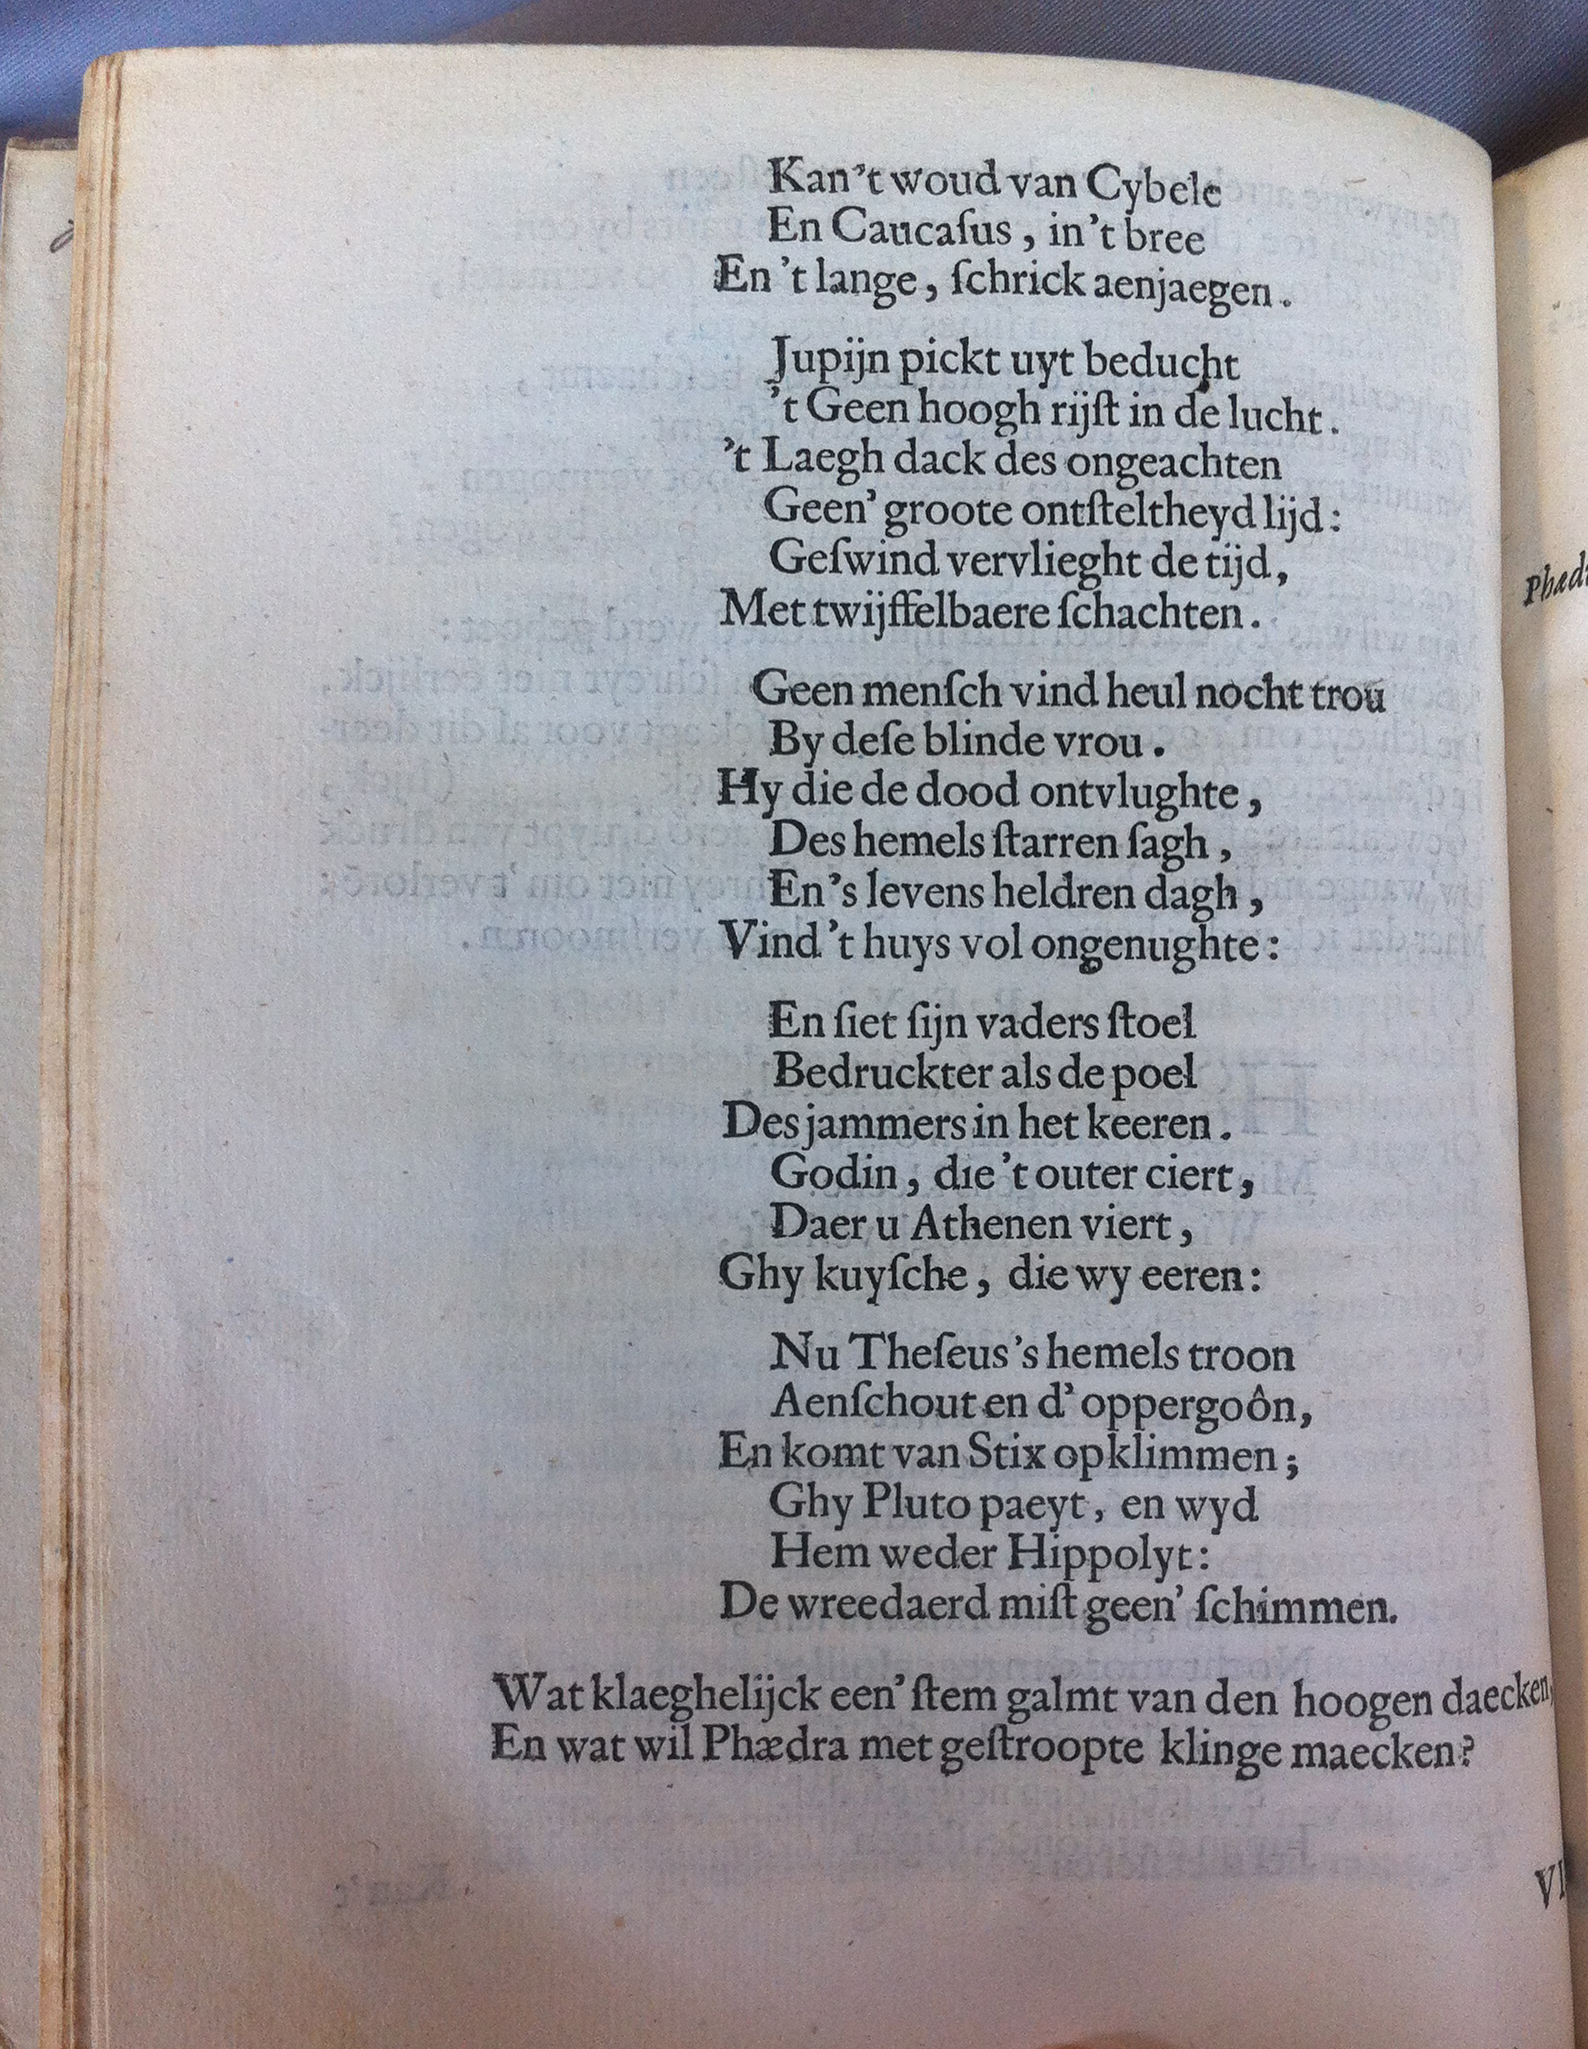 Kan't woud van Cybele
En Caucaſus, in't bree
En 't lange, ſchrick aenjaegen.
Jupijn pickt uyt beducht
't Geen hoogh rijſt in de lucht.
't Laegh dack des ongeachten
Geen' groote ontſteltheyd lijd:
Geſwind vervlieght de tijd,
Met twijffelbaere ſchachten.
Geen menſch vind heul nocht trou
By deſe blinde vrou.
Hy die de dood ontvlughte,
Des hemels ſtarren ſagh,
En's levens heldren dagh,
Vind 't huys vol ongenughte:
En ſiet ſijn vaders ſtoel
Bedruckter als de poel
Des jammers in het keeren.
Godin, die 't outer ciert,
Daer u Athenen viert,
Ghy kuyſche, die wy eeren:
Nu Theſeus 's hemels troon
Aenſchout en d' oppergoôn,
En komt van Stix opklimmen;
Ghy Pluto paeyt, en wyd
Hem weder Hippolyt:
De wreedaerd miſt geen' ſchimmen.
Wat klaeghelijck een' ſtem galmt van den hoogen daecken,
En wat wil Phædra met geſtroopte klinge maecken?